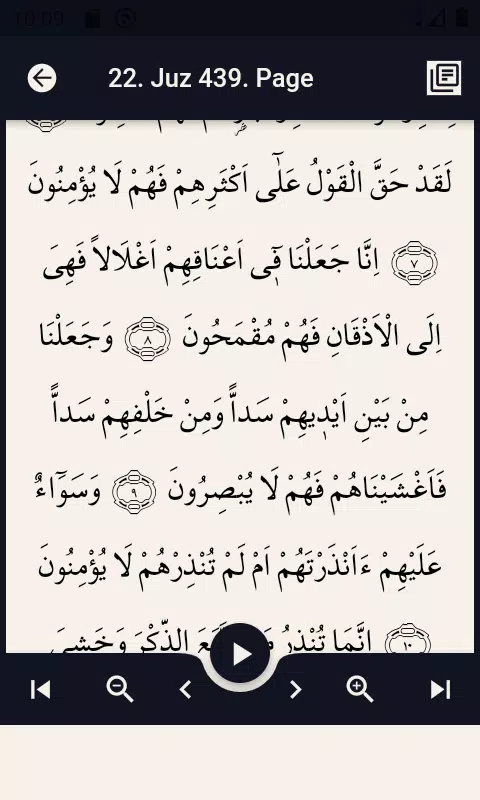 10:09
22. Juz 439. Page
لَقَدْ حَقَّ الْقَوْلُ عَلٰٓى اَكْثَرِهِمْ فَهُمْ لَا يُؤْمِنُونَ
﴿٧﴾ اِنَّا جَعَلْنَا فٖٓى اَعْنَاقِهِمْ اَغْلَالاً فَهِىَ
اِلَى الْاَذْقَانِ فَهُمْ مُقْمَحُونَ ﴿٨﴾ وَجَعَلْنَا
مِنْ بَيْنِ اَيْدٖيهِمْ سَداًّ وَمِنْ خَلْفِهِمْ سَداًّ
فَاَغْشَيْنَاهُمْ فَهُمْ لَا يُبْصِرُونَ ﴿٩﴾ وَسَوَٓاءٌ
عَلَيْهِمْ ءَاَنْذَرْتَهُمْ اَمْ لَمْ تُنْذِرْهُمْ لَا يُؤْمِنُونَ
﴿١٠﴾ اِنَّمَا تُنْذِرُ الذِّكْرَ وَخَشِىَ